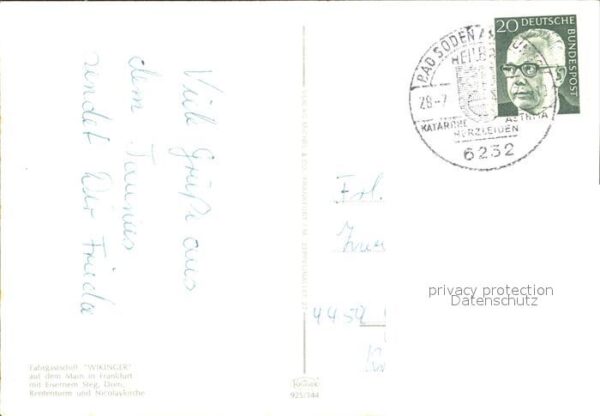 Viele Grüße aus
dem Taunus
sendet Dir Frieda
Fahrgastschiff "WIKINGER"
auf dem Main in Frankfurt
mit Eisernem Steg, Dom,
Rententurm und Nicolaikirche
925/344
BAD SODEN
HEILBAD
28.-7
KATARRHE ASTHMA
HERZLEIDEN
6232
20 DEUTSCHE
BUNDESPOST
Frl.
4459
privacy protection
Datenschutz